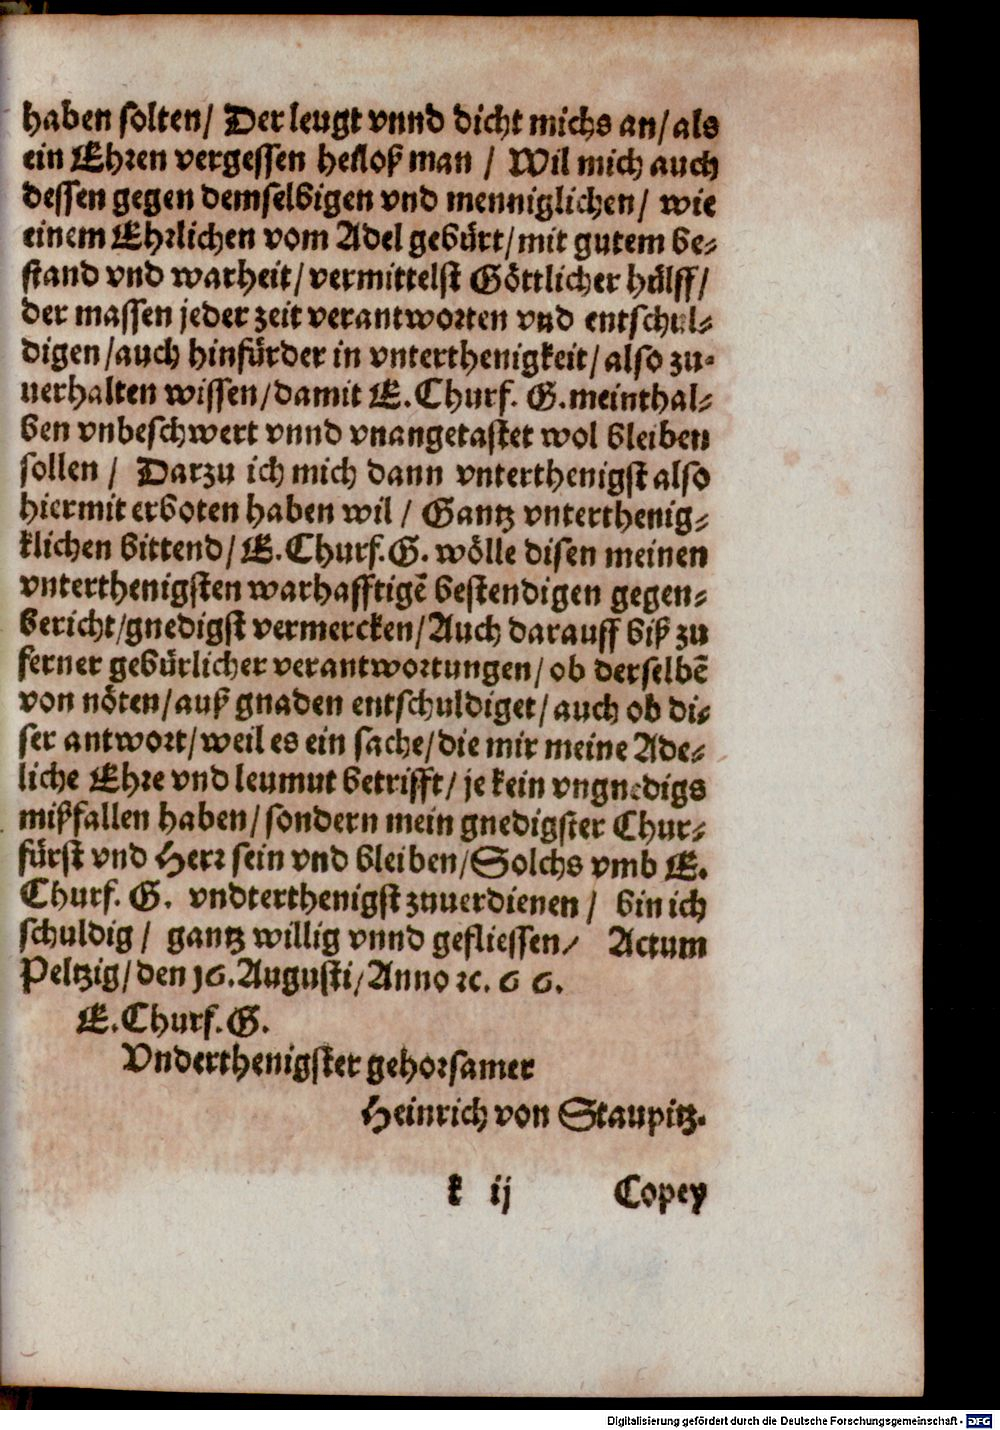 haben solten/ Der leugt vnnd dicht michs an/als
ein Ehren vergessen helloß man / Wil mich auch
dessen gegen demselbigen vnd menniglichen/ wie
einem Ehrlichen vom Adel gebürt/mit gutem be-
stand vnd warheit/vermittelst Göttlicher hülff/
der massen jeder zeit verantworten vnd entschul-
digen/auch hinfürder in vnterthenigkeit/also zu-
uerhalten wissen/damit E.Churf. G.meinthal-
ben vnbeschwert vnnd vnangetastet wol bleiben
sollen / Darzu ich mich dann vnterthenigst also
hiermit erboten haben wil / Gantz vnterthenig-
klichen bittend/E.Churf.G. wölle disen meinen
vnterthenigsten warhafftigẽ bestendigen gegen-
bericht/gnedigst vermercken/Auch darauff biß zu
ferner gebürlicher verantwortungen/ob derselbẽ
von nöten/auß gnaden entschuldiget/auch ob di-
ser antwort/weil es ein sache/die mir meine Ade-
liche Ehre vnd leumut betrifft/je kein vngnedigs
mißfallen haben/sondern mein gnedigster Chur-
fürst vnd Herr sein vnd bleiben/Solchs vmb E.
Churf. G. vndterthenigst zuuerdienen / bin ich
schuldig / gantz willig vnnd gefliessen/ Actum
Peltzig/den 16.Augusti/Anno ꝛc. 6 6.
E.Churf.G.
Vnderthenigster gehorsamer
Heinrich von Staupitz.
k ij Copey
Digitalisierung gefördert durch die Deutsche Forschungsgemeinschaft - DFG